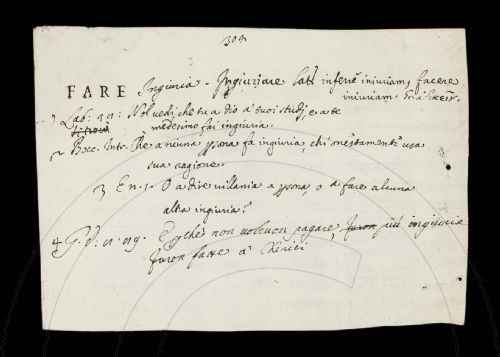 308.
FARE Ingiuria. Ingiuriare lat. inferre iniuriam, facere
iniuriam. ἀδικεῖν.
1 Lab: 39: Nol vedj, che tu a Dio a tuoi studj, e a te
medesimo fai ingiuria.
2 Bocc. Intr. Che a niuna psona fà ingiuria, chi onestamente usa
sua ragione.
3 O a dire villania a psona, o a fare alcuna
altra ingiuria?
4 G. V. E pche non volevon pagare, furon più ingiurie
furon fatte a Cherici